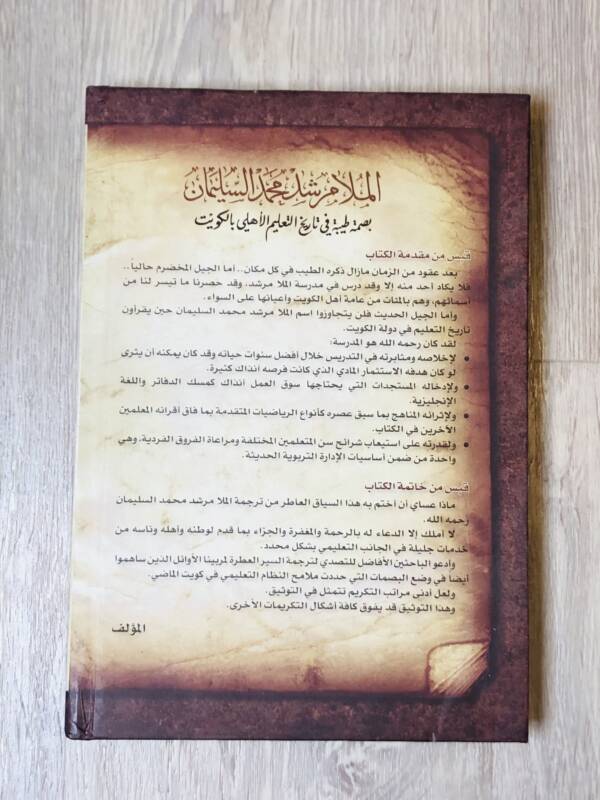 الملا مرشد محمد السليمان
بصمة طيبة في تاريخ التعليم الأهلي بالكويت
قبس من مقدمة الكتاب
بعد عقود من الزمان مازال ذكره الطيب في كل مكان.. أما الجيل المخضرم حالياً..
فلا يكاد أحد منه إلا وقد درس في مدرسة الملا مرشد، وقد حصرنا ما تيسر لنا من
أسمائهم، وهم بالمئات من عامة أهل الكويت وأعيانها على السواء.
وأما الجيل الحديث فلن يتجاوزوا اسم الملا مرشد محمد السليمان حين يقرأون
تاريخ التعليم في دولة الكويت.
لقد كان رحمه الله هو المدرسة:
• لإخلاصه ومثابرته في التدريس خلال أفضل سنوات حياته وقد كان يمكنه أن يثرى
لو كان هدفه الاستثمار المادي الذي كانت فرصه آنذاك كثيرة.
• ولإدخاله المستجدات التي يحتاجها سوق العمل آنذاك كمسك الدفاتر واللغة
الإنجليزية.
• ولإثرائه المناهج بما سبق عصره كأنواع الرياضيات المتقدمة بما فاق أقرانه المعلمين
الآخرين في الكتاب.
• ولقدرته على استيعاب شرائح سن المتعلمين المختلفة ومراعاة الفروق الفردية، وهي
واحدة من ضمن أساسيات الإدارة التربوية الحديثة.
قبس من خاتمة الكتاب
ماذا عساي أن أختم به هذا السياق العاطر من ترجمة الملا مرشد محمد السليمان
رحمه الله.
لا أملك إلا الدعاء له بالرحمة والمغفرة والجزاء بما قدم لوطنه وأهله وناسه من
خدمات جليلة في الجانب التعليمي بشكل محدد.
وأدعو الباحثين الأفاضل للتصدي لترجمة السير العطرة لمربينا الأوائل الذين ساهموا
أيضا في وضع البصمات التي حددت ملامح النظام التعليمي في كويت الماضي.
ولعل أدنى مراتب التكريم تتمثل في التوثيق.
وهذا التوثيق قد يفوق كافة أشكال التكريمات الأخرى.
المؤلف